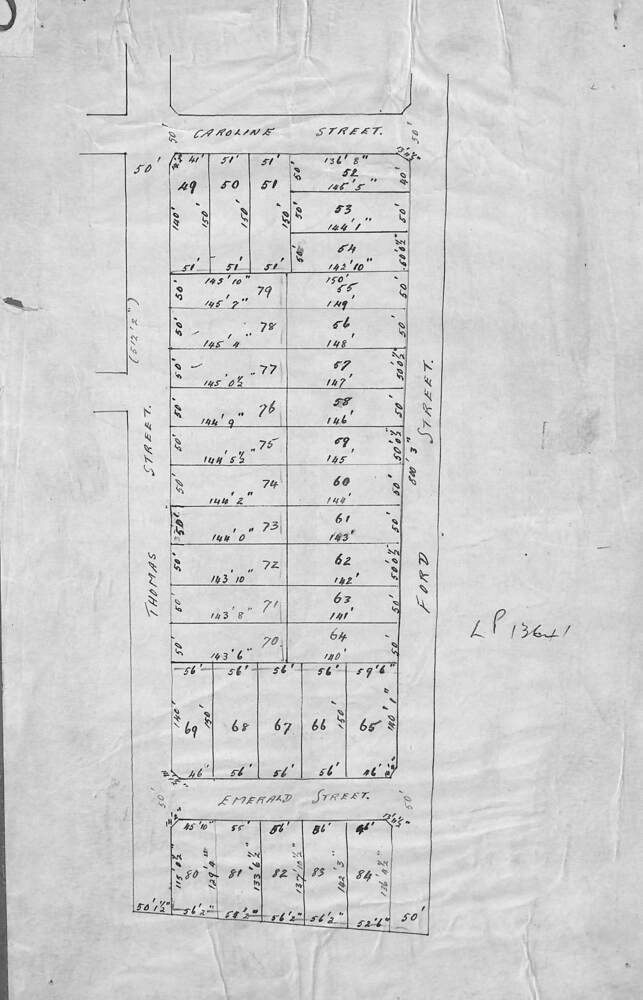 50'
CAROLINE STREET.
50'
50'
41' 51' 51' 136' 8"
52
50' 40'
145' 5"
49 50 51
53
140' 150' 150' 150' 50' 50'
144' 1"
54
50' 50' 0½"
51' 51' 51' 142' 10"
143' 10" 150'
50' 79 55 50'
145' 7" 149'
50' 78 56 50'
145' 4" 148'
(512' 2")
50' 77 57 50' 0½"
145' 0½" 147'
50' 76 58 50'
144' 9" 146'
STREET.
50' 75 59 50' 0½"
144' 5½" 145'
STREET.
800' 3"
50' 74 60 50'
144' 2" 144'
50' 73 61 50'
144' 0" 143'
50' 72 62 50' 0½"
143' 10" 142'
THOMAS
FORD
50' 71 63 50'
143' 8" 141'
50' 70 64 50'
143' 6" 140'
LP 13641
56' 56' 56' 56' 59' 6"
140' 150' 150' 140' 1"
69 68 67 66 65
46' 56' 56' 56' 46'
50'
EMERALD STREET.
50'
45' 10" 55' 56' 56' 46'
115' 0½" 129' 4" 133' 6½" 137' 10½" 142' 3"
80 81 82 83 84
50' 1½" 56' 2" 56' 2" 56' 2" 52' 6" 50'